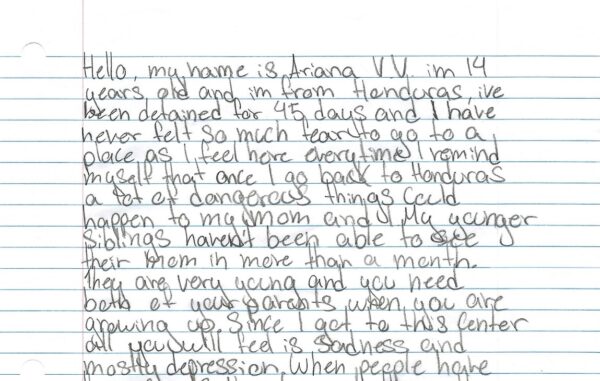 Hello, my name is Ariana V V. im 14
years old and im from Honduras, ive
been detained for 45 days and I have
never felt so much fear to go to a
place as I feel here everytime I remind
myself that once I go back to Honduras
a lot of dangerous things could
happen to my mom and I. My younger
siblings haven't been able to see
their mom in more than a month.
They are very young and you need
both of your parents when you are
growing up. Since I got to this Center
all you will feel is sadness and
mostly depression. When people have